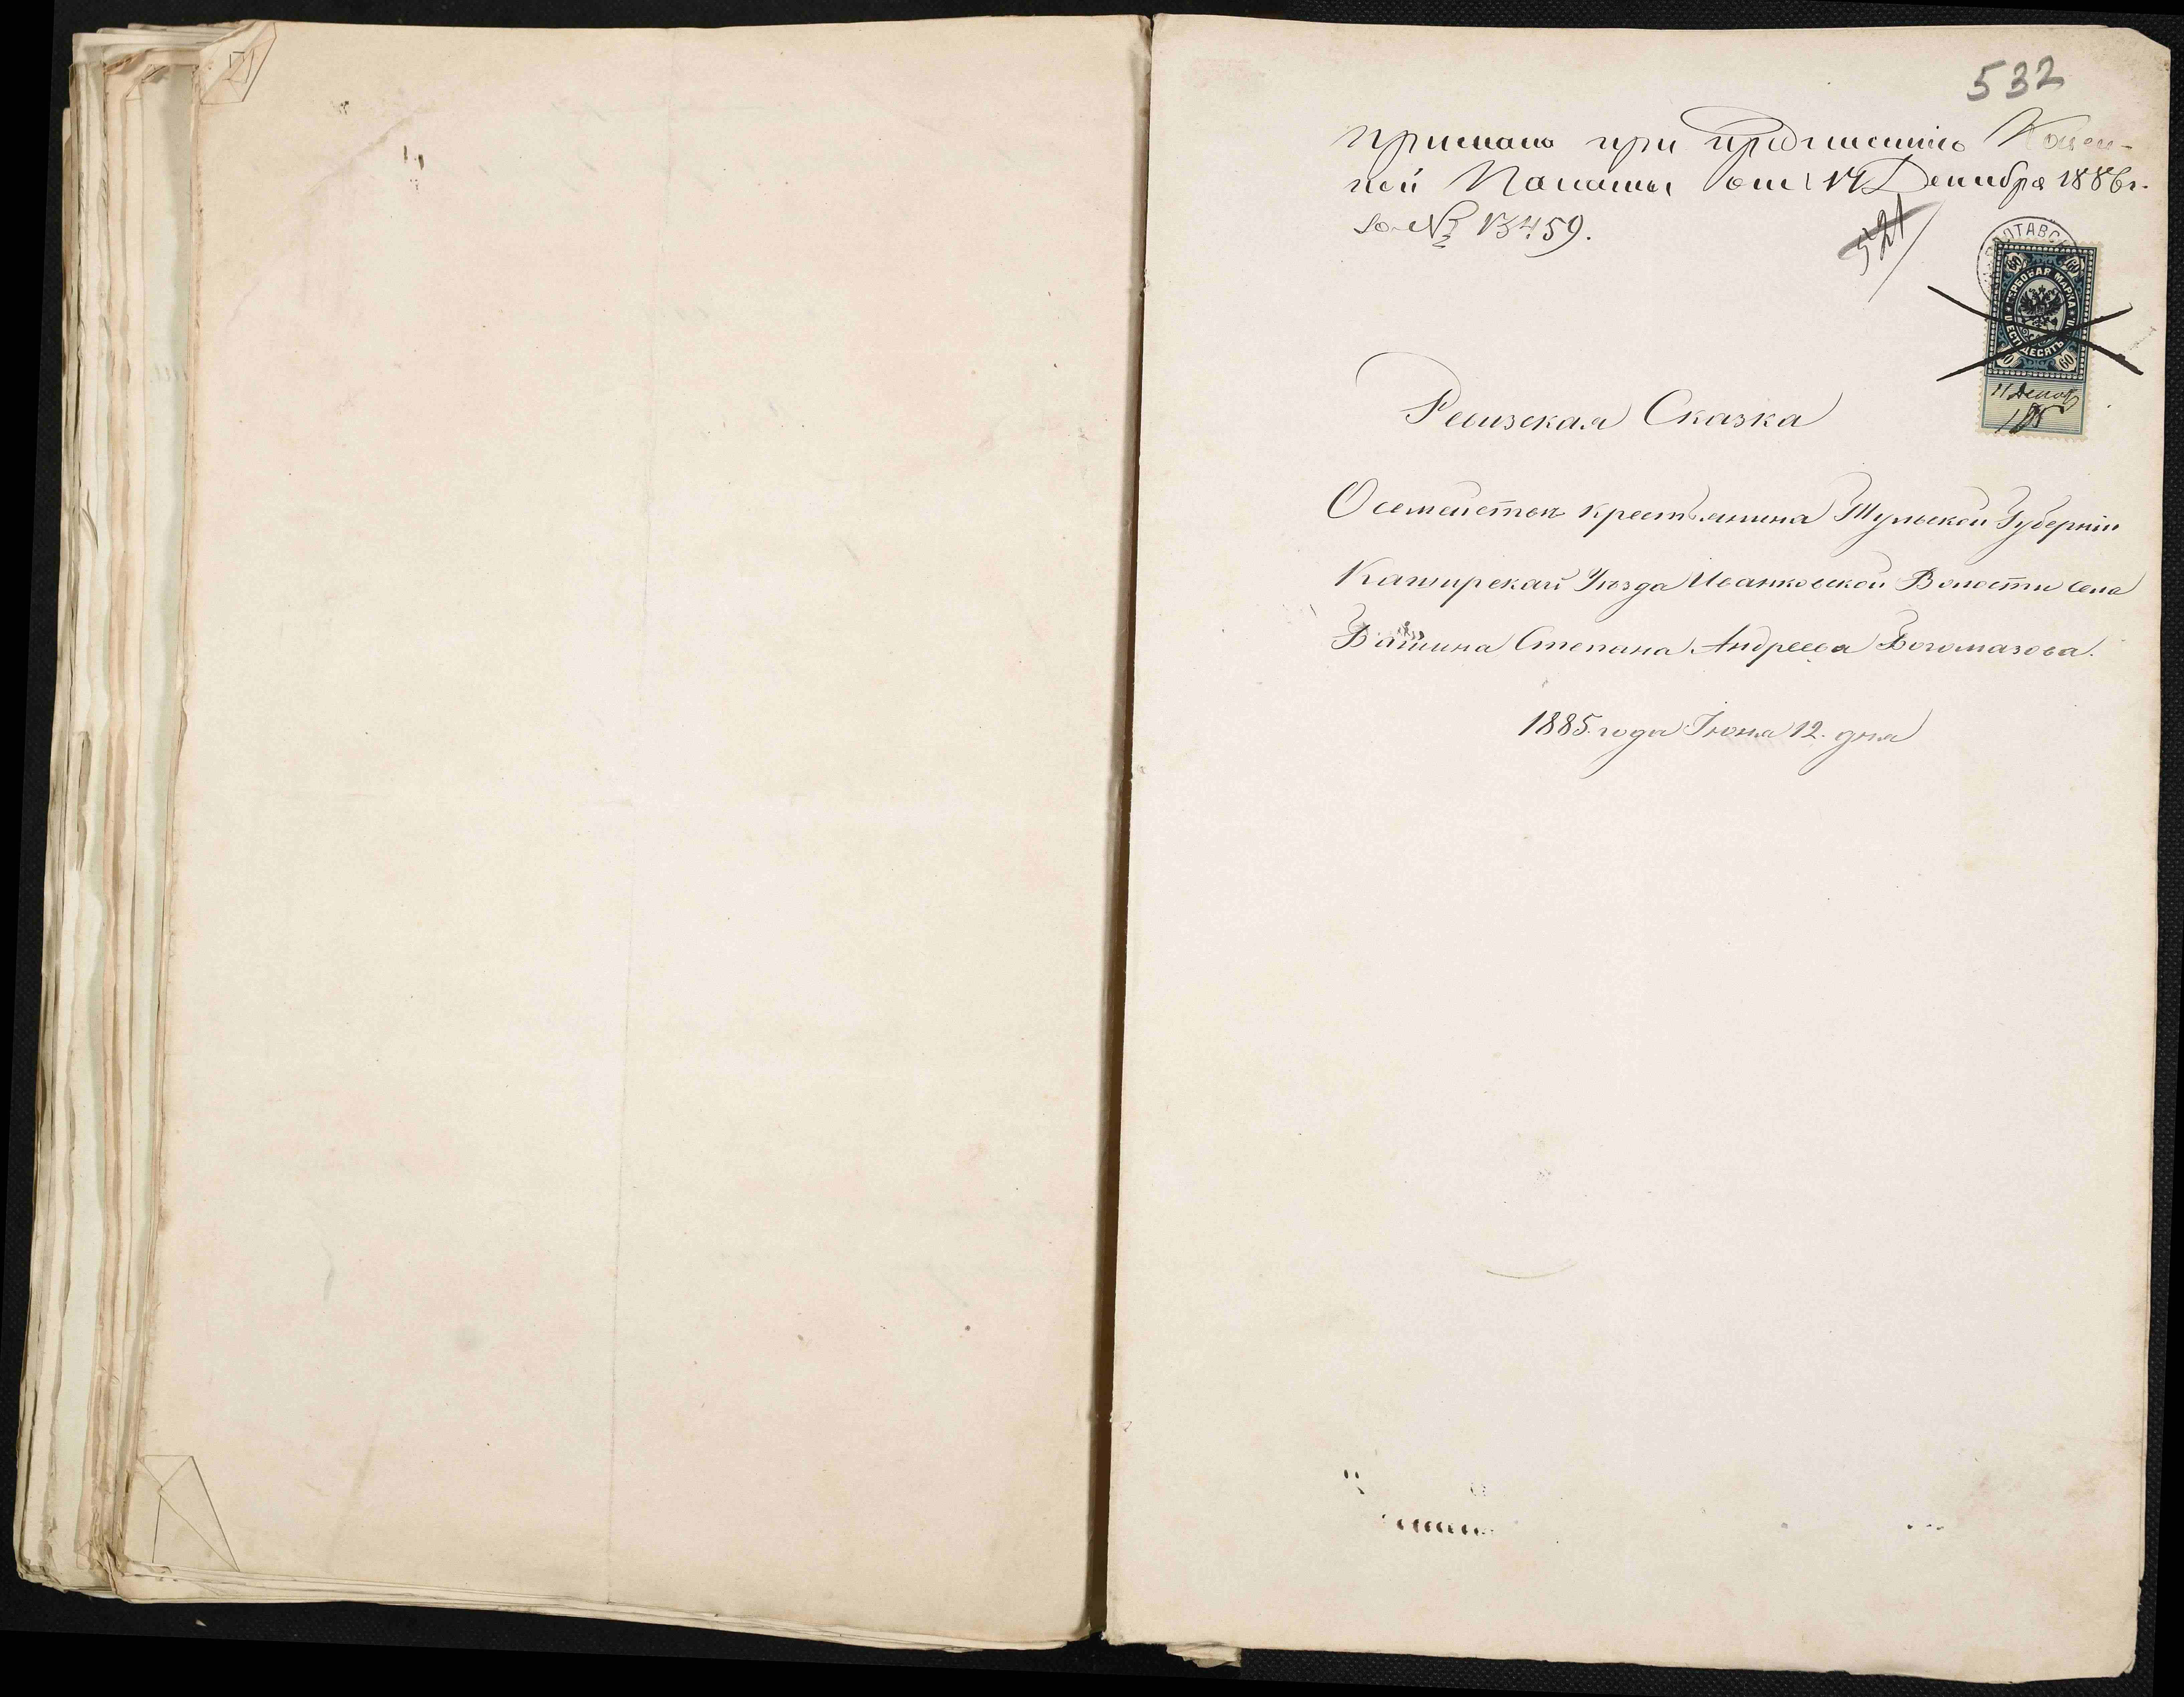 532
Прислано при предписанiю Казен-
ной Палаты от 14 Декабря 1886 г.
за № 13459.
521
ПОЛТАВСК
ГЕРБОВАЯ МАРКА
ШЕСТЬДЕСЯТЪ К.
60 60
60 60
11 Декаб
188
Ревизская Сказка
О семействѣ крестьянина Тульской Губернiи
Каширскаго Уѣзда Иванковской Волости села
Степана Андреева Богомазова.
1885 года Iюня 12. дня